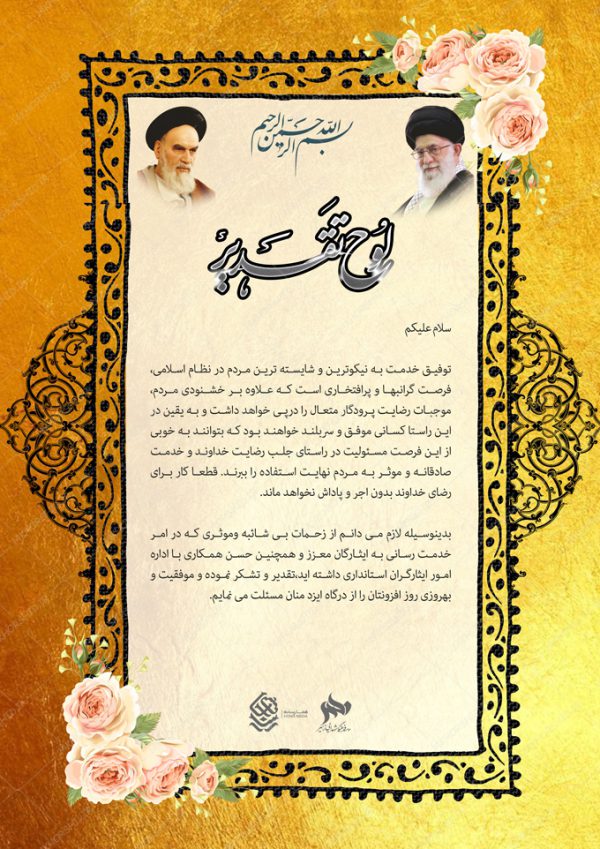 بسم الله الرحمن الرحیم
لوح تقدیر
سلام علیکم
توفیق خدمت به نیکوترین و شایسته ترین مردم در نظام اسلامی،
فرصت گرانبها و پرافتخاری است که علاوه بر خشنودی مردم،
موجبات رضایت پرودگار متعال را درپی خواهد داشت و به یقین در
این راستا کسانی موفق و سربلند خواهند بود که بتوانند به خوبی
از این فرصت مسئولیت در راستای جلب رضایت خداوند و خدمت
صادقانه و موثر به مردم نهایت استفاده را ببرند. قطعا کار برای
رضای خداوند بدون اجر و پاداش نخواهد ماند.
بدینوسیله لازم می دانم از زحمات بی شائبه وموثری که در امر
خدمت رسانی به ایثارگان معزز و همچنین حسن همکاری با اداره
امور ایثارگران استانداری داشته اید،تقدیر و تشکر نموده و موفقیت و
بهروزی روز افزونتان را از درگاه ایزد منان مسئلت می نمایم.